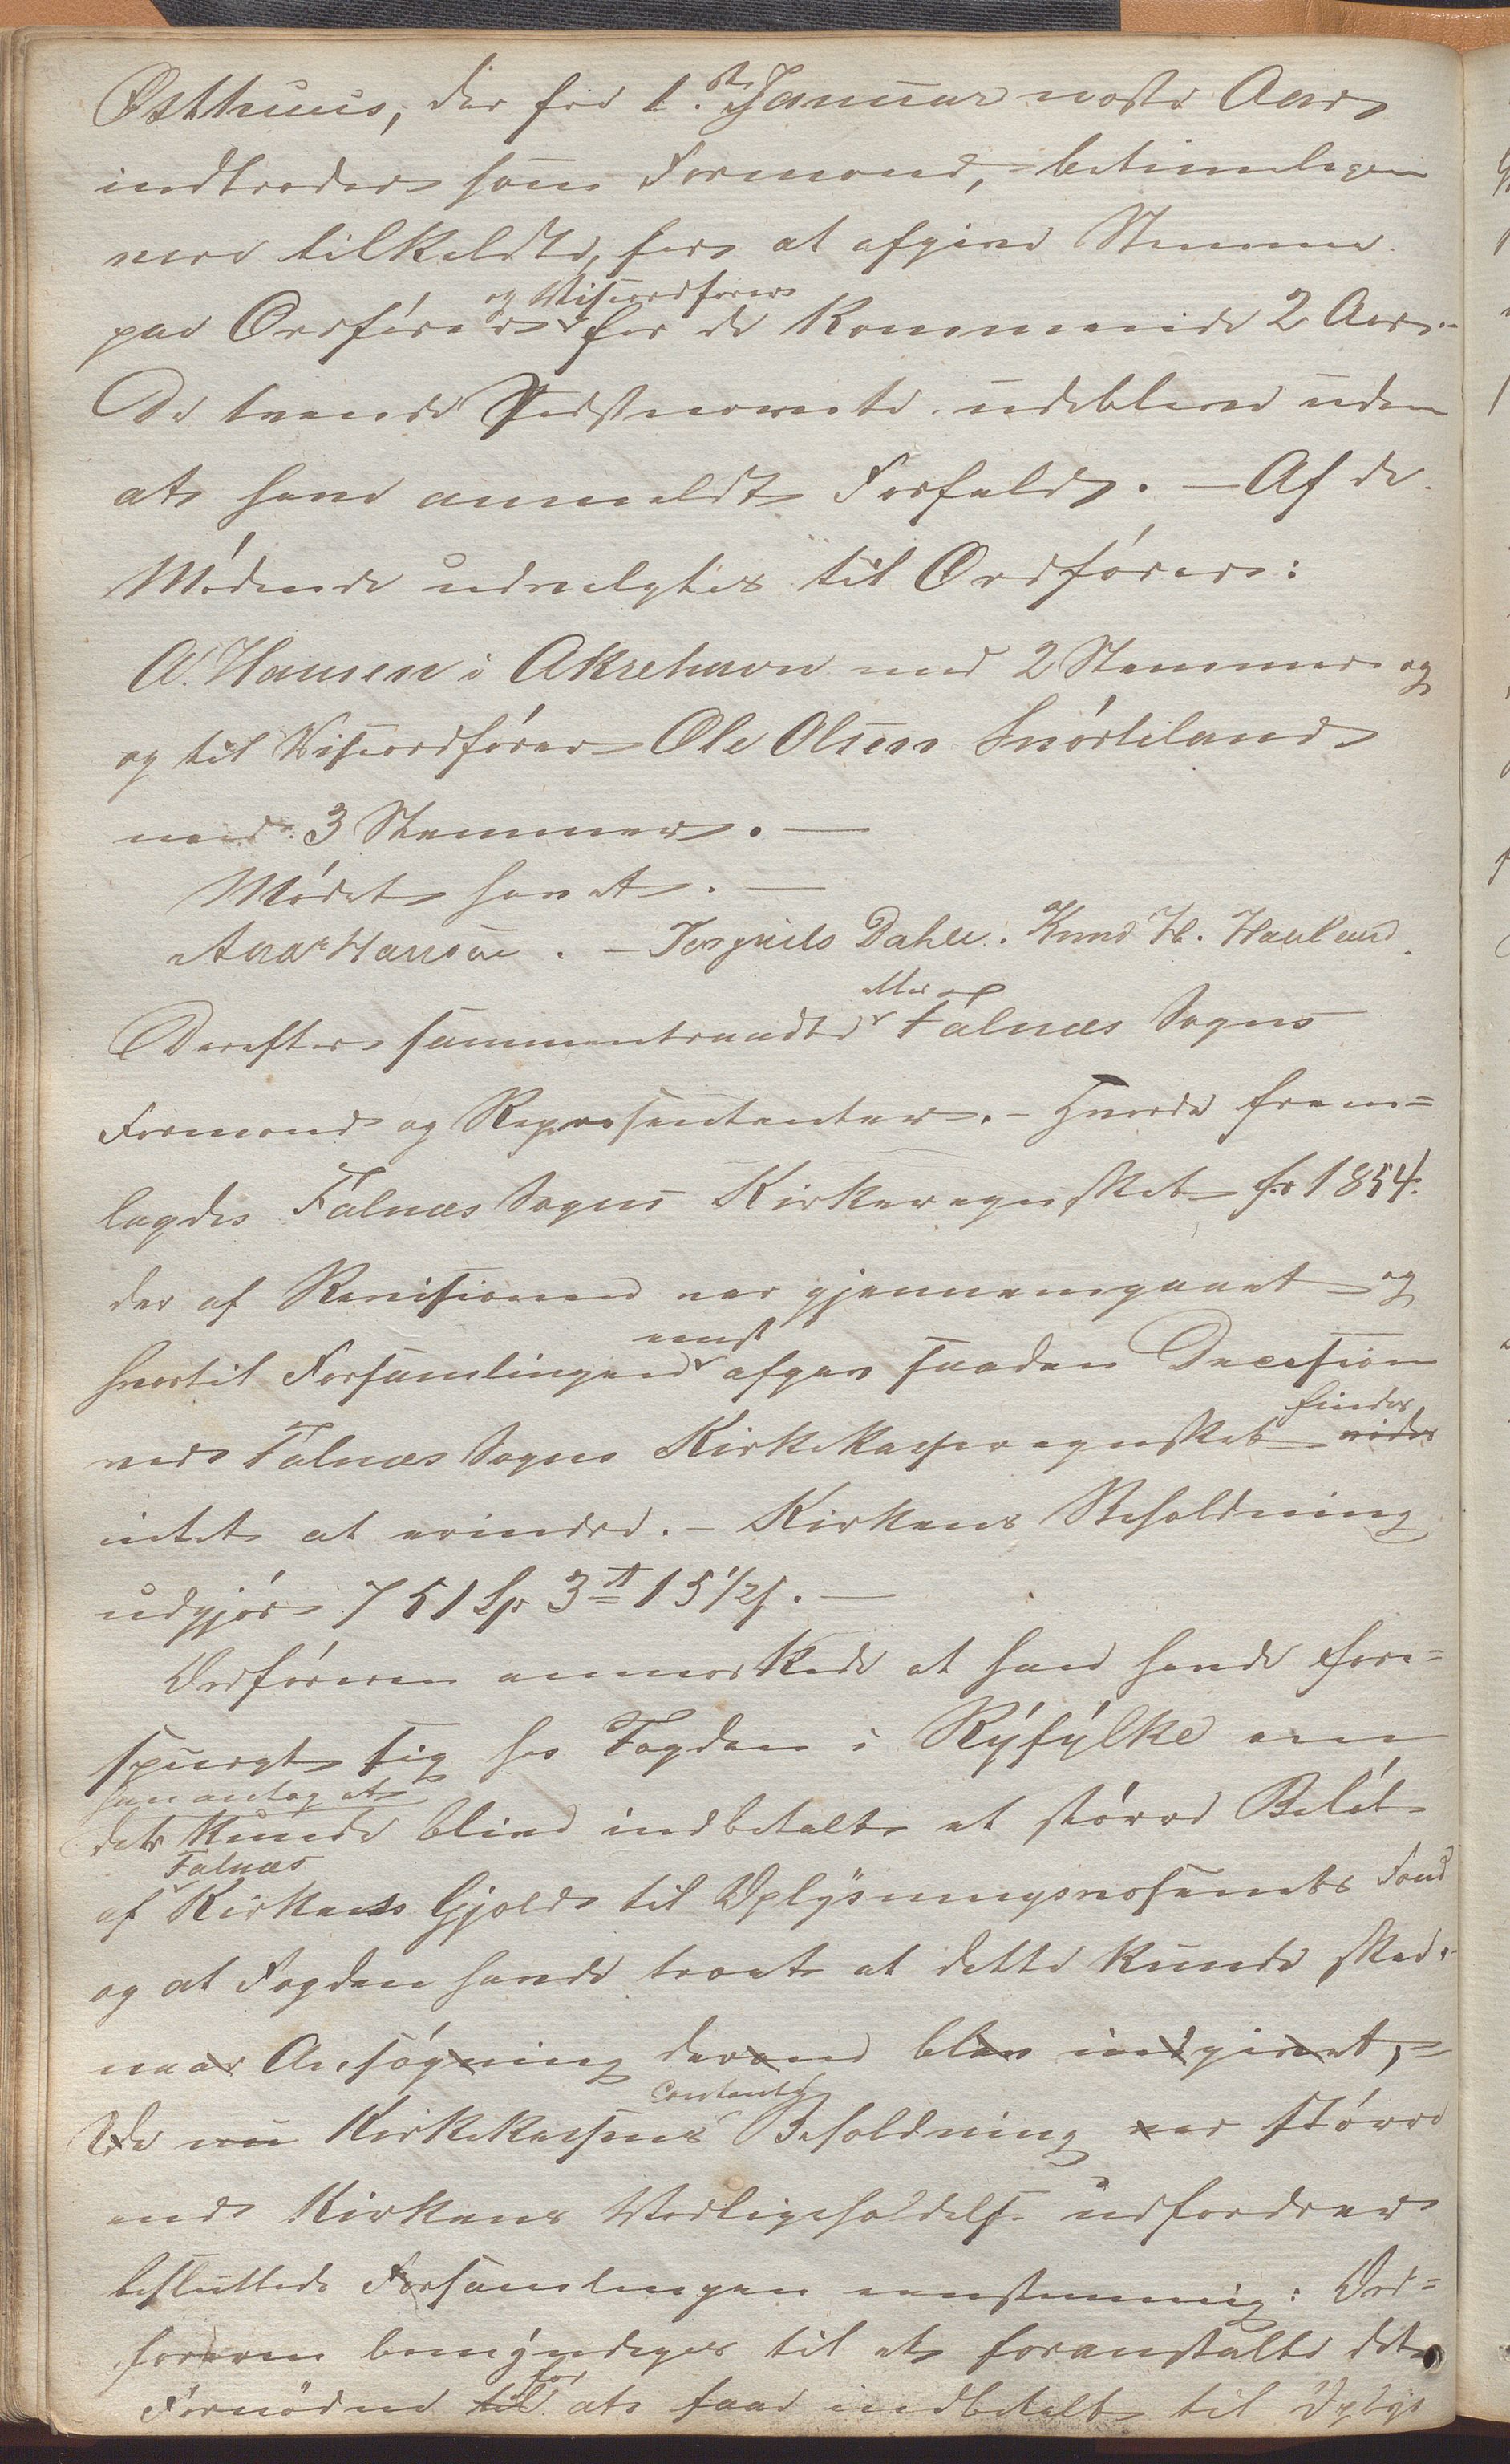 Østhuus, der fra 1ste Januar næste Aar
indtræder som Formænd, betimeligen
være tilkaldte, for at afgive Stemme
paa Ordfører og Viseordfører for de kommende 2 Aar.
De tvende Sidstnævnte udebleve uden
at have anmeldt Forfald. — Af de
Mødende udvalgtes til Ordfører:
A. Hansen i Akrehavn med 2 Stemmer og
og til Viseordfører Ole Olsen Snørteland
med 3 Stemmer. —
Mødet hævet. —
Hansen. — Torgrils Dahle. Knud H. Haaland.
Derefter sammentraadte Falnæs Sogns
Formænd og Repræsentanter. — Hvorda frem=
lagdes Falnæs Sogns Kirkeregnskab for 1854.
der af Revisionen var gjennemgaaet og
hvortil Forsamlingen eenst afgav saadan Decision
ved Falnæs Sogns Kirkekasseregnskab findes
intet at erindre. — Kirkens Beholdning
udgjør 751 Sp 3 # 15 1/2 s. —
Ordføreren anmærkede at han havde fore=
spurgt sig hos Fogden i Ryfylke om
han antog at
det kunde blive indbetalt et større Beløb
af Falnæs Kirkens Gjæld til Oplysningsvæsenets Fond
og at Fogden havde troet at dette kunde skee
naar Ansøgning derom blev indgivet, =
Da nu Kirkekassens contante Beholdning var større
end Kirkens Vedligeholdelse udfordrer
besluttede Forsamlingen eenstemmig: Ord=
føreren bemyndiges til at foranstalte det
Fornødne til for at faae indbetalt til Oplys